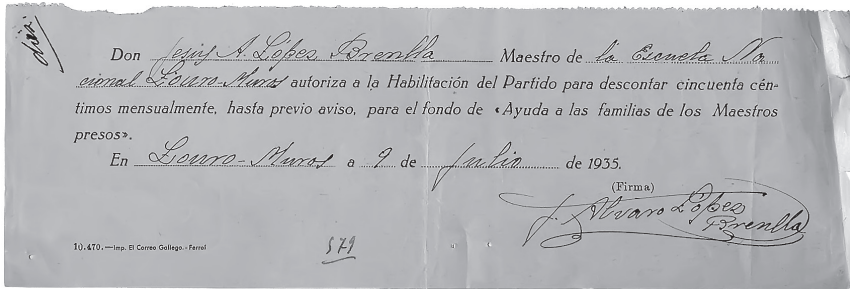 Don Jesús A. López Brenlla Maestro de la Escuela Na
cional Louro-Muros autoriza a la Habilitación del Partido para descontar cincuenta cén-
timos mensualmente, hasta previo aviso, para el fondo de «Ayuda a las familias de los Maestros
presos».
En Louro-Muros a 9 de Julio de 1935.
(Firma)
J. Alvaro López
Brenlla
10.470.—Imp. El Correo Gallego.-Ferrol
579